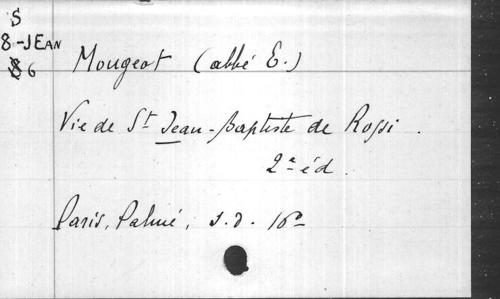 S
8-JEAN
6
Mougeot (abbé E.)
Vie de St Jean-Baptiste de Rossi.
2e éd.
Paris, Palmé, s.d. 16°